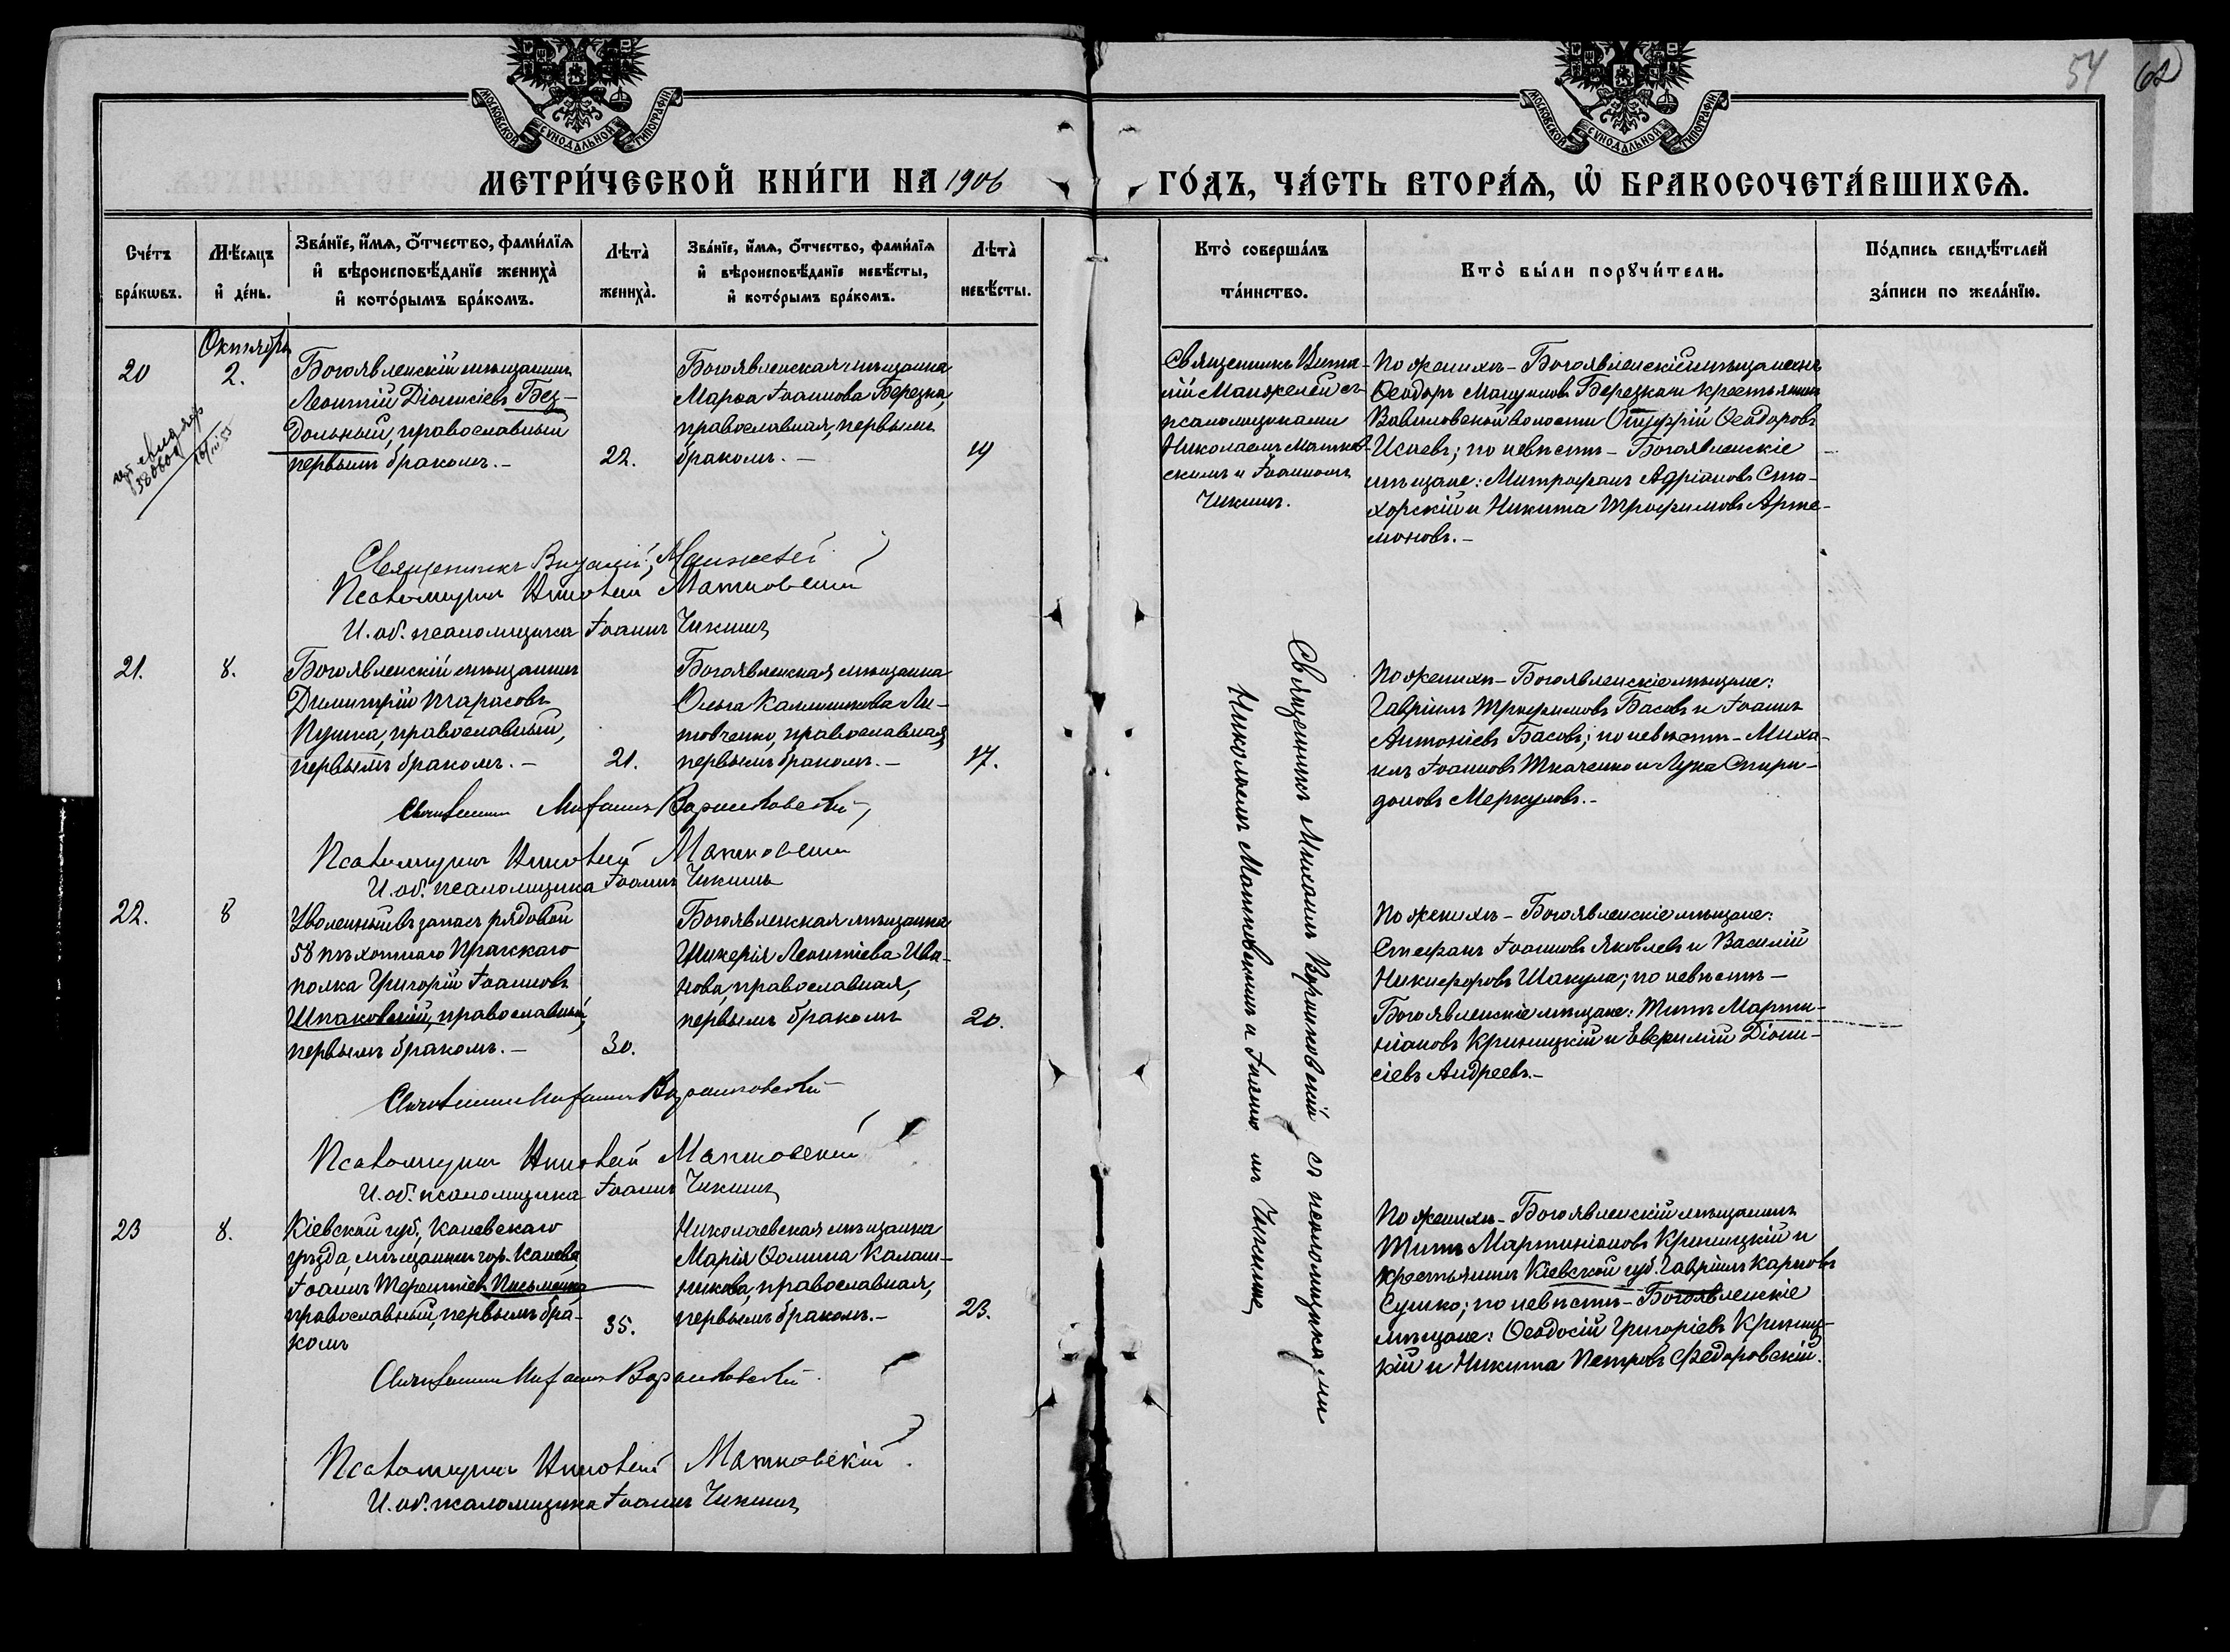 54
62
МОСКОВСКОЙ СУНОДАЛЬНОЙ ТИПОГРАФІИ
МОСКОВСКОЙ СУНОДАЛЬНОЙ ТИПОГРАФІИ
МЕТРИ́ЧЕСКОЙ КНИ́ГИ НА 1906
ГО́ДЪ, ЧА́СТЬ ВТОРА́Ѧ, Ѽ БРАКОСОЧЕТА́ВШИХСѦ.
Сче́тъ бра́кѡвъ.
Мѣ́сѧцъ и҆ де́нь.
Зва́нїе, и҆́мѧ, ѻ҆́тчество, фами́лїѧ и҆ вѣроисповѣ́данїе жениха̀ и҆ кото́рымъ бра́комъ.
Лѣта̀ жениха̀.
Зва́нїе, и҆́мѧ, ѻ҆́тчество, фами́лїѧ и҆ вѣроисповѣ́данїе невѣ́сты, и҆ кото́рымъ бра́комъ.
Лѣта̀ невѣ́сты.
Кто̀ соверша́лъ та́инство.
Кто̀ бы́ли порꙋчи́тели.
По́дпись свидѣ́телей за́писи по жела́нїю.
Октябрь
20
2.
Богоявленскій мѣщанинъ
Леонтій Діонисіевъ Без-
дольный, православный
первымъ бракомъ. –
22.
Богоявленская мѣщанка
Марѳа Іоаннова Березка,
православная, первымъ
бракомъ. –
19
Священникъ Вита-
лій Манжелей съ
псаломщиками
Николаемъ Матков-
скимъ и Іоанномъ
Чикинъ.
По женихѣ – Богоявленскій мѣщанинъ
Ѳеодоръ Березка и крестьянинъ
Вавиловской волости Онуфрій Ѳеодоровъ
Исаевъ; по невѣстѣ – Богоявленскіе
мѣщане: Митрофанъ Адріановъ Ста-
хорскій и Никита Трофимовъ Арте-
моновъ. –
Священникъ Виталій Манжелей
Псаломщикъ Николай Матковскій
И. об. псаломщика Іоаннъ Чикинъ
21.
8.
Богоявленскій мѣщанинъ
Димитрій Тарасовъ
Пушка, православный,
первымъ бракомъ. –
21.
Богоявленская мѣщанка
Ольга Каллиникова Ли-
товченко, православная,
первымъ бракомъ. –
17.
По женихѣ – Богоявленскіе мѣщане:
Гавріилъ Трифимовъ Басовъ и Іоаннъ
Антоніевъ Басовъ; по невѣстѣ – Миха-
илъ Іоанновъ Ткаченко и Лука Спири-
доновъ Меркуловъ. –
Священникъ Михаилъ Варшковскій
Псаломщикъ Николай Матковскій
И. об. псаломщика Іоаннъ Чикинъ
22.
8
Уволенный въ запасъ рядовой
58 пѣхотнаго Прагскаго
полка Григорій Іоанновъ
Шпаковскій, православный,
первымъ бракомъ. –
30.
Богоявленская мѣщанка
Гликерія Леонтіева Ива-
нова, православная,
первымъ бракомъ
20.
По женихѣ – Богоявленскіе мѣщане:
Стефанъ Іоанновъ Яковлевъ и Василій
Никифоровъ Шакула; по невѣстѣ –
Богоявленскіе мѣщане: Титъ Марти-
ніановъ Криницкій и Евфимій Діони-
сіевъ Андреевъ. –
Священникъ Михаилъ Варшковскій
Псаломщикъ Николай Матковскій
И. об. псаломщика Іоаннъ Чикинъ
Священникъ Михаилъ Варшковскій съ псаломщиками
Николаемъ Матковскимъ и Чикинъ
23
8.
Кіевской губ., Каневскаго
уѣзда, мѣщанинъ гор. Канева,
Іоаннъ Терентіевъ Письменко
православный, первымъ бра-
комъ
35.
Николаевская мѣщанка
Марія Ѳомина Калаш-
никова, православная,
первымъ бракомъ. –
23.
По женихѣ – Богоявленскій мѣщанинъ
Титъ Мартиніановъ Криницкій и
крестьянинъ Кіевской губ. Гавріилъ Карповъ
Сушко; по невѣстѣ – Богоявленскіе
мѣщане: Ѳеодосій Григоріевъ Криниц-
кій и Никита Петровъ Федоровскій.
Священникъ Михаилъ Варшковскій
Псаломщикъ Николай Матковскій.
И. об. псаломщика Іоаннъ Чикинъ